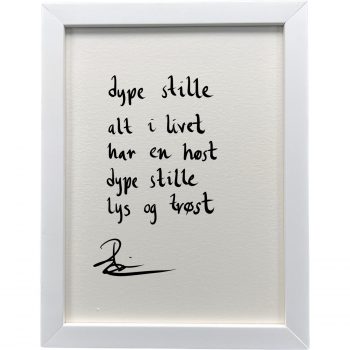 dype stille
alt i livet
har en høst
dype stille
lys og trøst